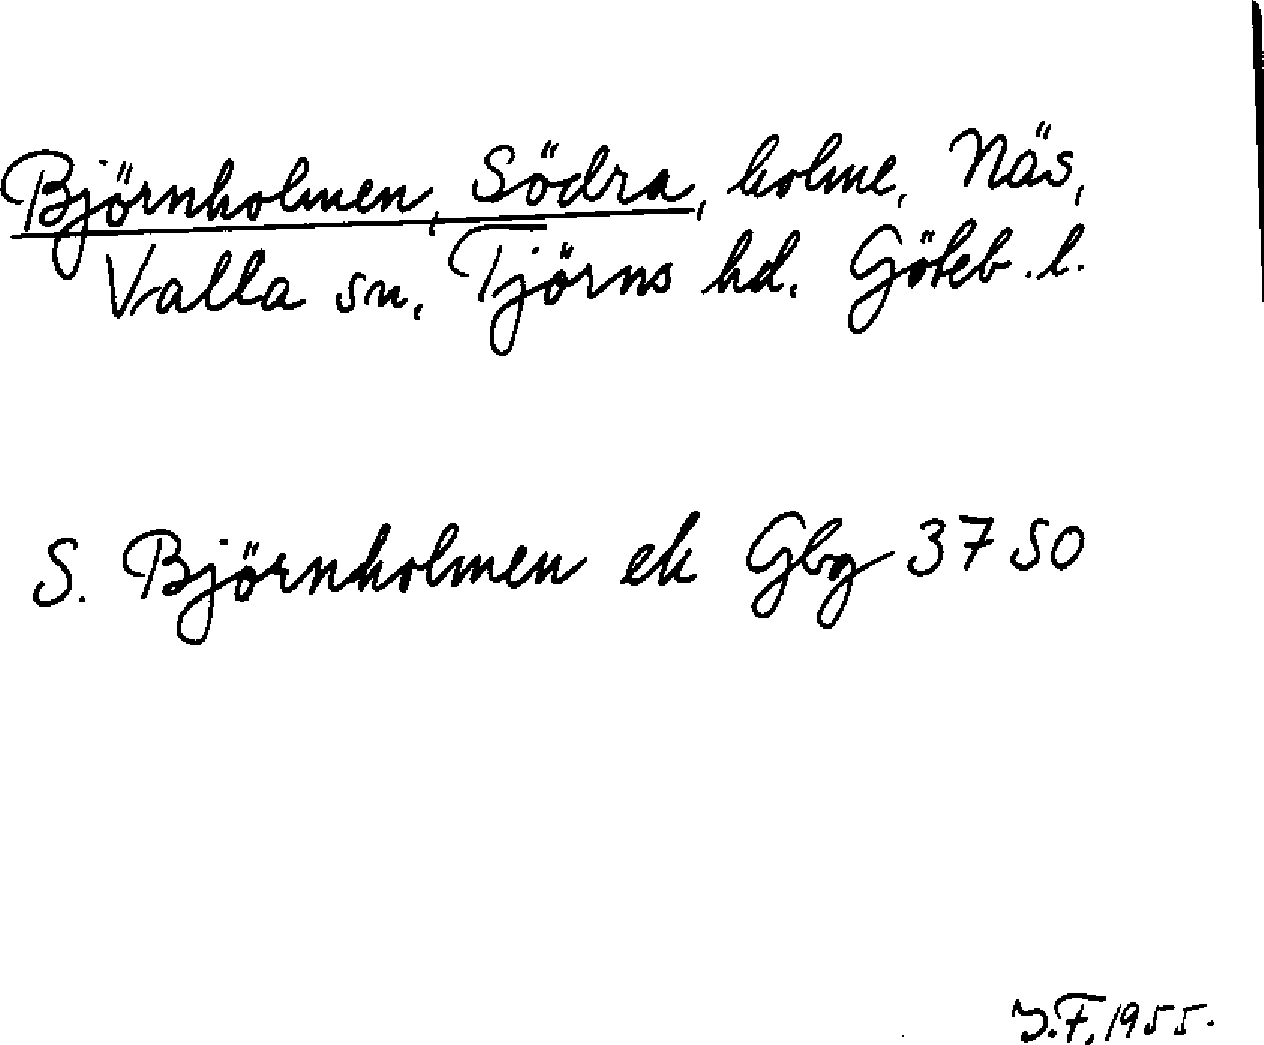 Björnholmen, Södra, holme, Näs,
Valla sn, Tjörns hd. Göteb. l.
S. Björnholmen ek Gbg 3750
J.F. 1955.